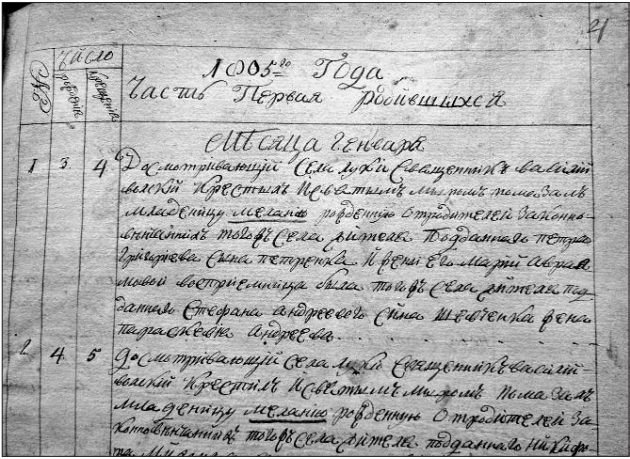 21
Число
№ рождения крещения
1805го Года
Часть Первая родившыхся
Мѣсяца Генваря
1 3 4 Досмотривающій села Луки священникъ Василій
волскій крестилъ и святымъ мѵромъ помазалъ
младеницу Меланию рожденную от родителей законно-
вѣнчанныхъ тогожъ села жителя подданного Петра
Григориева сына Петренка и жени его Марій Аврам
мовой восприемница была тогожъ села жителя под-
данного Стефана Андреевого сина Шевченка жена
Параскевия Андреева
2 4 5 досмотривающій села Луки священникъ василій-
волскій крестилъ и святымъ мѵромъ помазалъ
младеницу меланию рожденную от родителей за
конновѣнчанныхъ тогожъ села жителя подданного